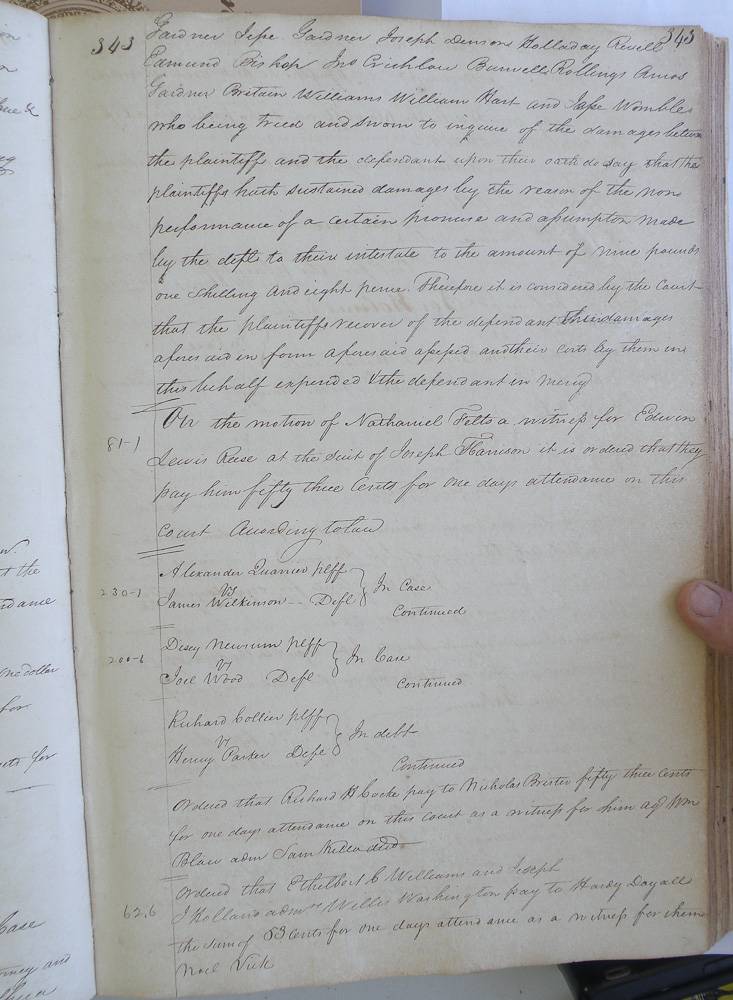 343 343
Gardner Jesse Gardner Joseph Denson Holladay Revill
Edmund Bishop Jno Crichlow Burwell Rollings Amos
Gardner Britain Williams William Hart and Jesse Womble
who being tried and sworn to inquire of the damages between
the plaintiff and the defendant upon their oath do say that the
plaintiffs hath sustained damages by the reason of the non
performance of a certain promise and assumpton made
by the deft to their intestate to the amount of nine pounds
one Shilling and eight pence. Therefore it is considered by the Court
that the plaintiffs recover of the defendant their damages
aforesaid in form aforesaid assessed and their costs by them in
this behalf expended & the defendant in mercy
On the motion of Nathaniel Felts a witness for Edwin
81-1
Lewis Rese at the suit of Joseph Harrison it is ordered that they
pay him fifty three Cents for one days attendance on this
court According to law
Alexander Quarrier plff
vs
230-1 James Wilkinson -- Deft } In Case
Continued
Disey Newsum plff
200-6 vs } In Case
Joel Wood Deft
Continued
Richard Collier plff
vs } In debt
Henry Parker Deft
Continued
Ordered that Richard H Cocke pay to Nicholas Brister fifty three Cents
for one days attendance on this court as a witness for him agt Wm
Blow adm Sam decd
Ordered that Ethelbert C Williams and Joseph
62,6 J Holland admrs Willis Washington pay to Hardy Doyall
the sum of 53 Cents for one days attendance as a witness for them
Noel Vick